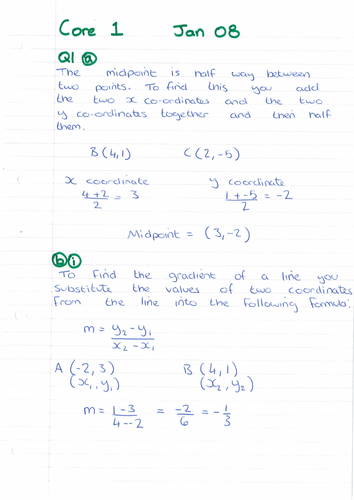 Core 1 Jan 08
Q1 a
The midpoint is half way between
two points. To find this you add
the two x co-ordinates and the two
y co-ordinates together and then half
them.
B(4,1) C(2,-5)
x coordinate y coordinate
4+2/2 = 3 1+-5/2 = -2
Midpoint = (3,-2)
b i
To find the gradient of a line you
substitute the values of two coordinates
from the line into the following formula:
m = y₂-y₁/x₂-x₁
A (-2,3) B (4,1)
(x₁,y₁) (x₂,y₂)
m = 1-3/4--2 = -2/6 = -1/3